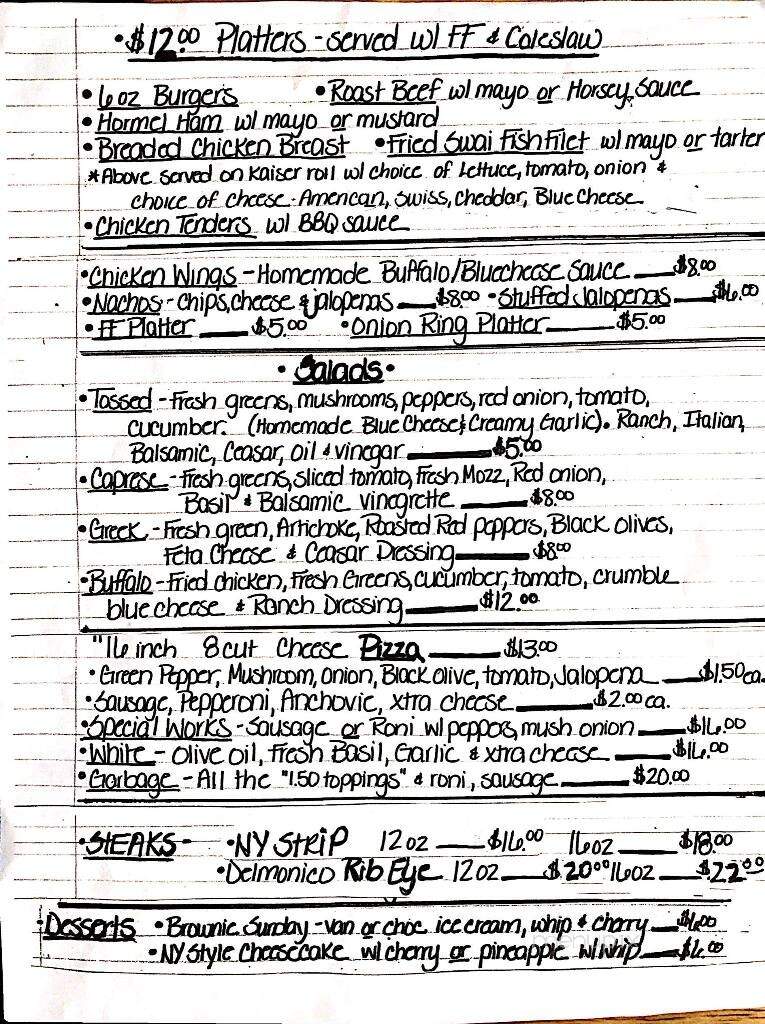 • $12.00 Platters - served w/ FF & Coleslaw
• 6 oz Burgers • Roast Beef w/ mayo or Horsey Sauce
• Hormel Ham w/ mayo or mustard
• Breaded Chicken Breast • Fried Swai Fish Filet w/ mayo or tarter
* Above served on Kaiser roll w/ choice of Lettuce, tomato, onion &
choice of cheese - American, Swiss, cheddar, Blue Cheese
• Chicken Tenders w/ BBQ sauce
• Chicken Wings - Homemade Buffalo/Bluecheese Sauce $8.00
• Nachos - chips, cheese & jalopenos $8.00 • Stuffed Jalopenos $6.00
• FF Platter $5.00 • Onion Ring Platter $5.00
• Salads •
• Tossed - Fresh greens, mushrooms, peppers, red onion, tomato,
cucumber. (Homemade Blue Cheese & Creamy Garlic). Ranch, Italian,
Balsamic, Ceasar, oil & vinegar $5.00
• Caprese - Fresh greens, sliced tomato, Fresh Mozz, Red onion,
Basil & Balsamic vinegrette $8.00
• Greek - Fresh green, Artichoke, Roasted Red peppers, Black olives,
Feta Cheese & Ceasar Dressing $8.00
• Buffalo - Fried chicken, Fresh Greens, cucumber, tomato, crumble
blue cheese & Ranch Dressing $12.00
"16 inch 8 cut Cheese Pizza $13.00
• Green Pepper, Mushroom, onion, Black olive, tomato, Jalopeno $1.50 ea.
• Sausage, Pepperoni, Anchovie, xtra cheese $2.00 ca.
• Special Works - Sausage or Roni w/ peppers, mush onion $16.00
• White - olive oil, Fresh Basil, Garlic & xtra cheese $16.00
• Garbage - All the "1.50 toppings" & roni, sausage $20.00
• STEAKS - • NY STRIP 12 oz $16.00 16oz $18.00
• Delmonico Rib Eye 12 oz $20.00 16oz $22.00
• Desserts • Brownie Sunday - van or choc ice cream, whip & cherry $6.00
• NY Style Cheesecake w/ cherry or pineapple w/ whip $6.00